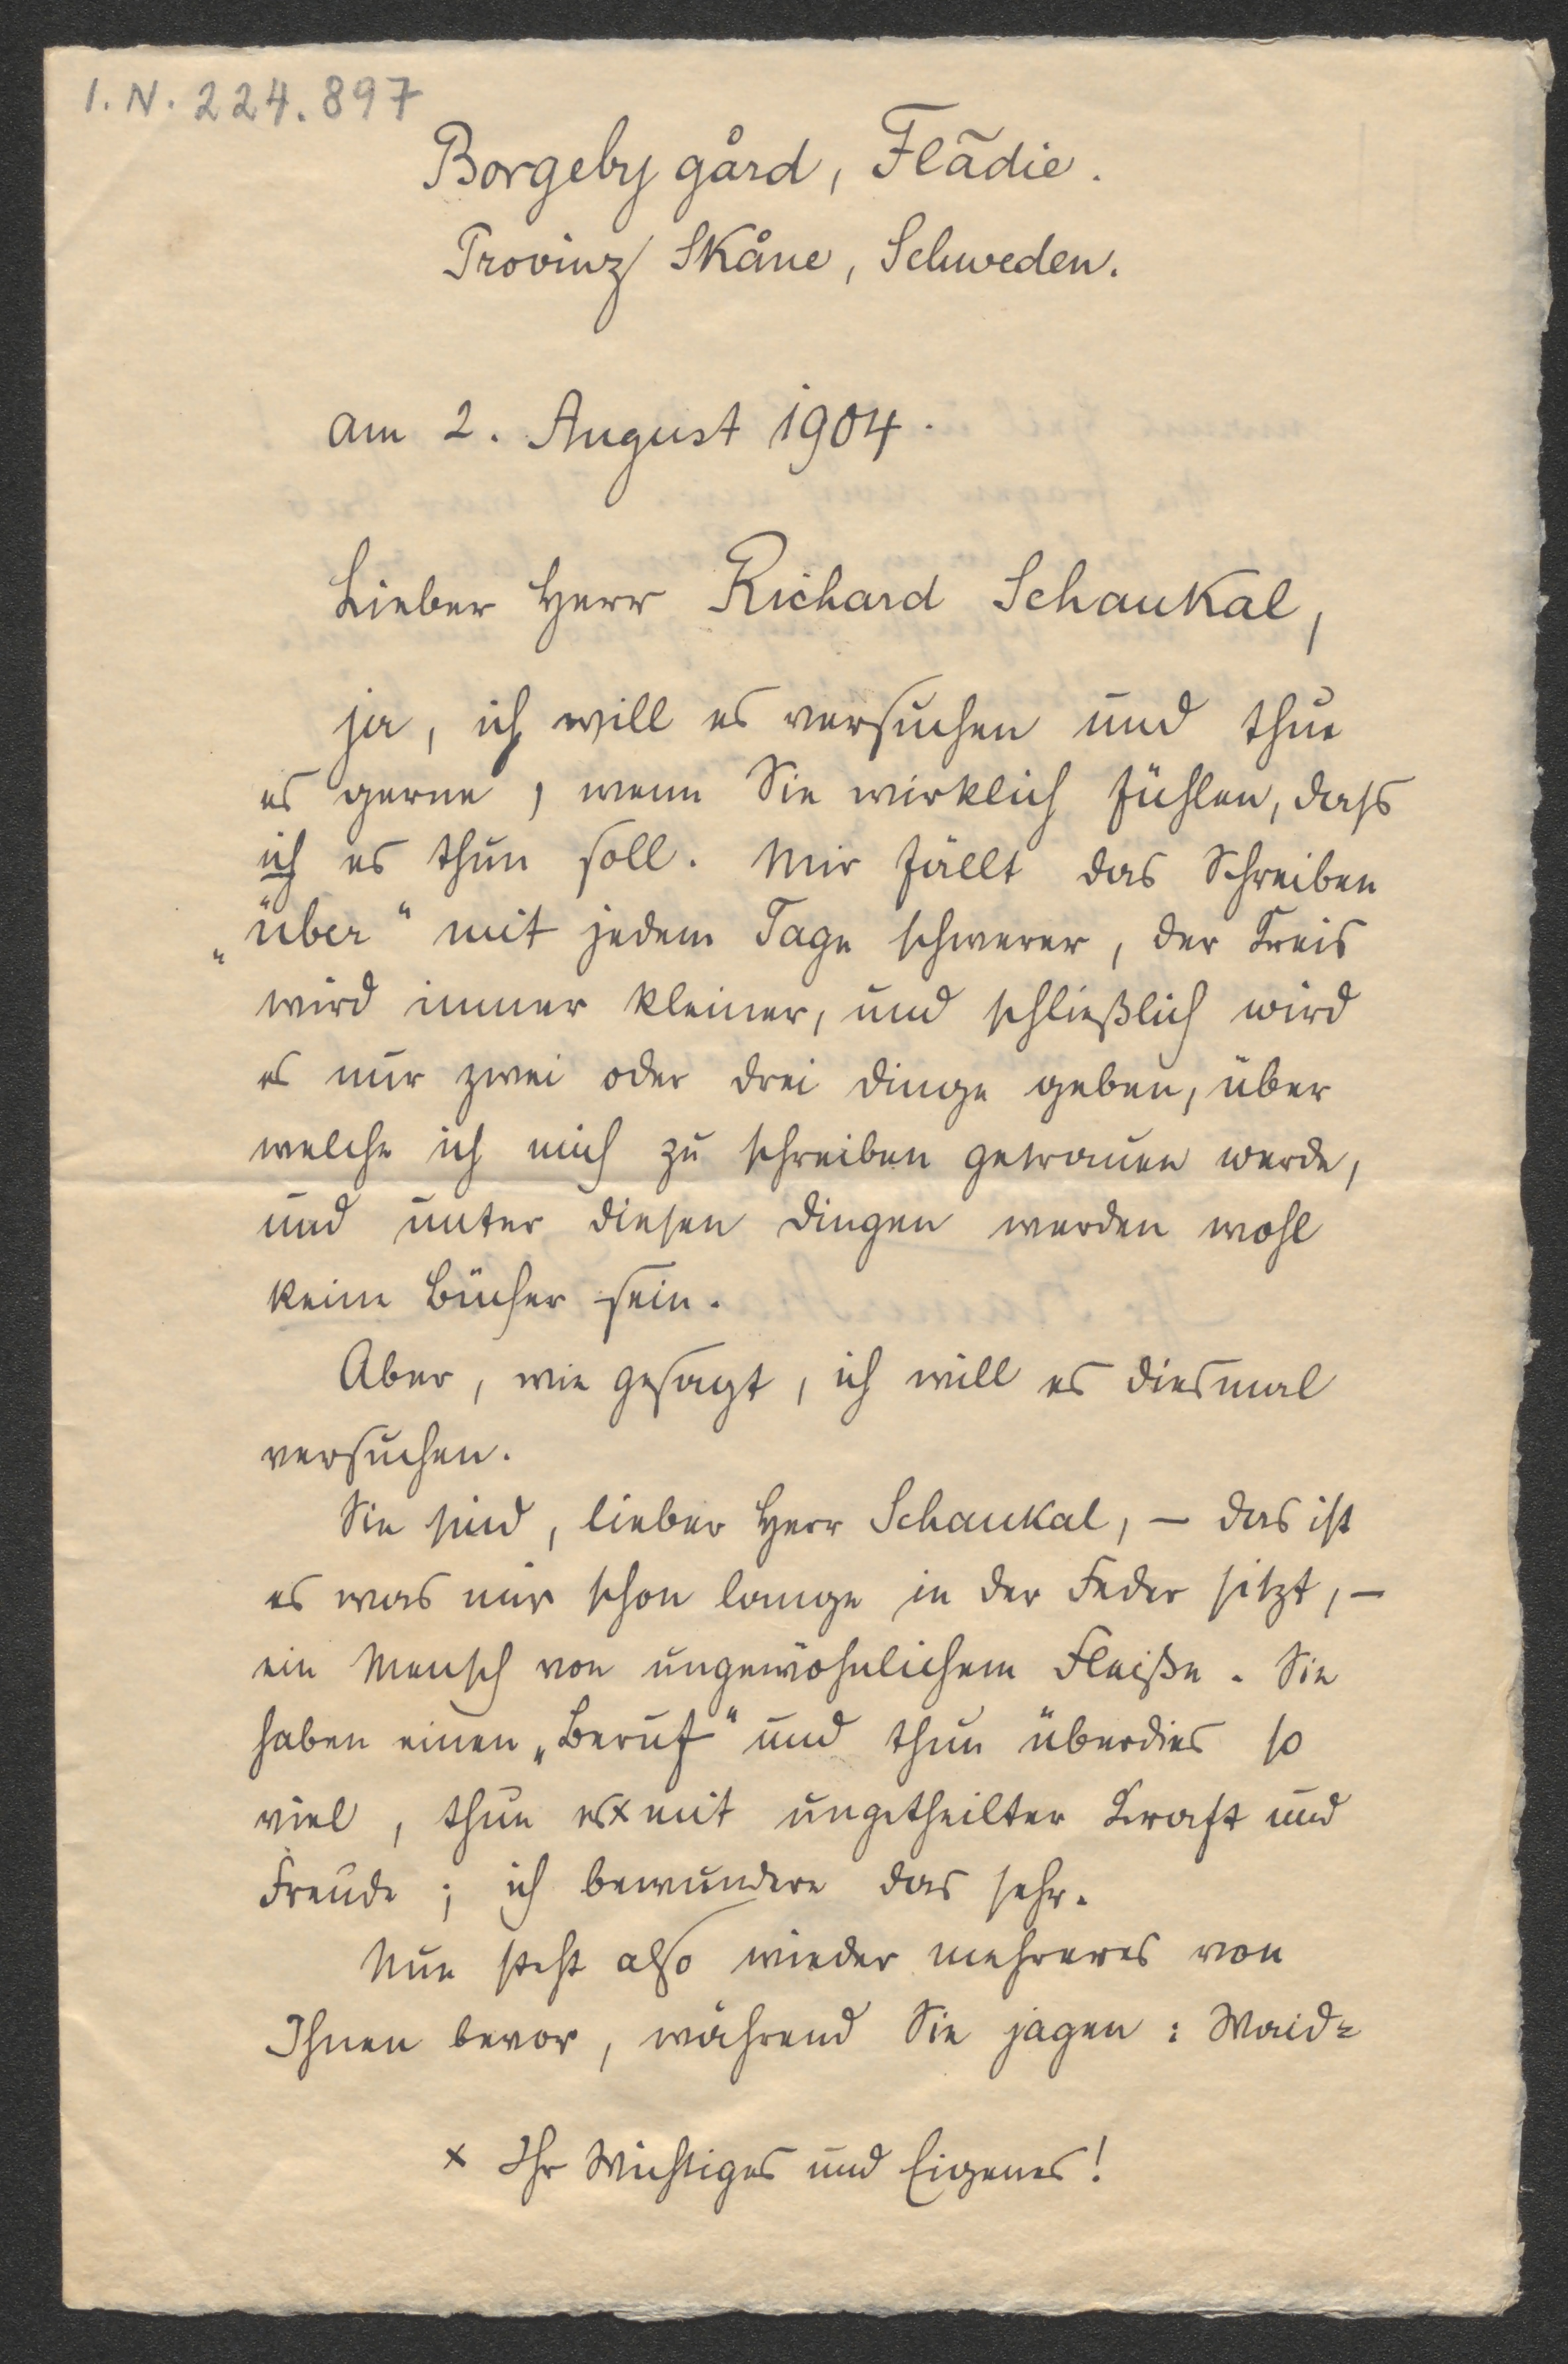 I.N. 224.897
Borgeby gård, Flãdie.
Provinz Skåne, Schweden.
am 2. August 1904.
Lieber Herr Richard Schaukal,
ja, ich will es versuchen und thue
es gerne, wenn Sie wirklich fühlen, dass
ich es thun soll. Mir fällt das Schreiben
„über“ mit jedem Tage schwerer, der Kreis
wird immer kleiner, und schließlich wird
es nur zwei oder drei Dinge geben, über
welche ich mich zu schreiben getrauen werde,
und unter diesen Dingen werden wohl
keine Bücher sein.
Aber, wie gesagt, ich will es diesmal
versuchen.
Sie sind, lieber Herr Schaukal, – das ist
es was mir schon lange in der Feder sitzt, –
ein Mensch von ungewöhnlichem Fleiße. Sie
haben einen „Beruf“ und thun überdies so
viel, thun es x mit ungetheilter Kraft und
Freude; ich bewundere das sehr.
Nun steht also wieder mehreres von
Ihnen bevor, während Sie jagen: Waid=
x Ihr Wichtiges und Eigenes!